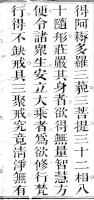 得阿耨多羅三藐三菩提三十二相八
十隨形莊嚴其身者欲得無量智慧方
便令諸衆生安立大乘者為欲修行梵
行得不缺戒具三聚戒究竟清淨無有